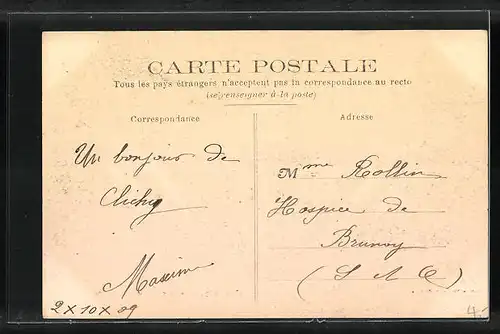 CARTE POSTALE
Tous les pays étrangers n'acceptent pas la correspondance au recto
(se renseigner à la poste)
Correspondance
Adresse
Un bonjour de
Clichy
Maxime
2 X 10 X 09
Mme Rollin
Hospice de
Brunoy
(S & O)
4.-